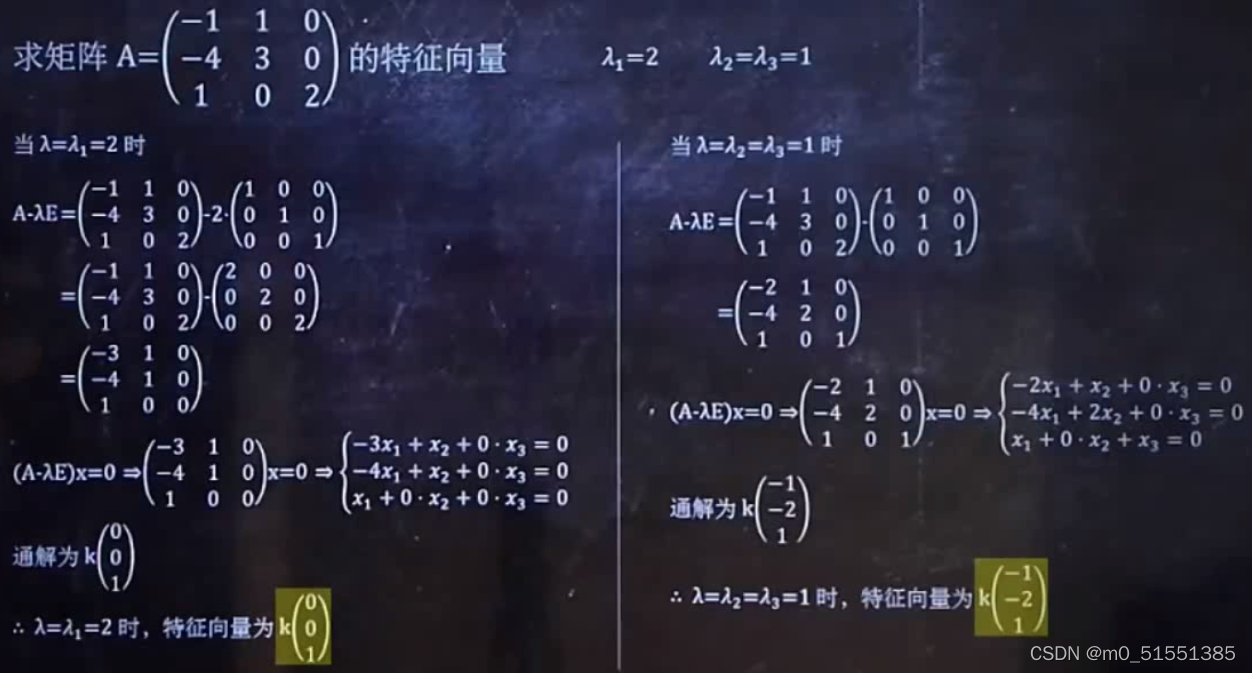 求矩阵 A=
−1 1 0
−4 3 0
1 0 2
的特征向量 λ₁=2 λ₂=λ₃=1
当 λ=λ₁=2 时
A-λE=(−1 1 0; −4 3 0; 1 0 2)-2·(1 0 0; 0 1 0; 0 0 1)
=(−1 1 0; −4 3 0; 1 0 2)-(2 0 0; 0 2 0; 0 0 2)
=(−3 1 0; −4 1 0; 1 0 0)
(A-λE)x=0 ⇒(−3 1 0; −4 1 0; 1 0 0)x=0 ⇒ {−3x₁ + x₂ + 0 · x₃ = 0
−4x₁ + x₂ + 0 · x₃ = 0
x₁ + 0 · x₂ + 0 · x₃ = 0
通解为 k(0; 0; 1)
∴ λ=λ₁=2 时，特征向量为 k(0; 0; 1)
当 λ=λ₂=λ₃=1 时
A-λE=(−1 1 0; −4 3 0; 1 0 2)-(1 0 0; 0 1 0; 0 0 1)
=(−2 1 0; −4 2 0; 1 0 1)
(A-λE)x=0 ⇒(−2 1 0; −4 2 0; 1 0 1)x=0 ⇒ {−2x₁ + x₂ + 0 · x₃ = 0
−4x₁ + 2x₂ + 0 · x₃ = 0
x₁ + 0 · x₂ + x₃ = 0
通解为 k(−1; −2; 1)
∴ λ=λ₂=λ₃=1 时，特征向量为 k(−1; −2; 1)
CSDN @m0_51551385